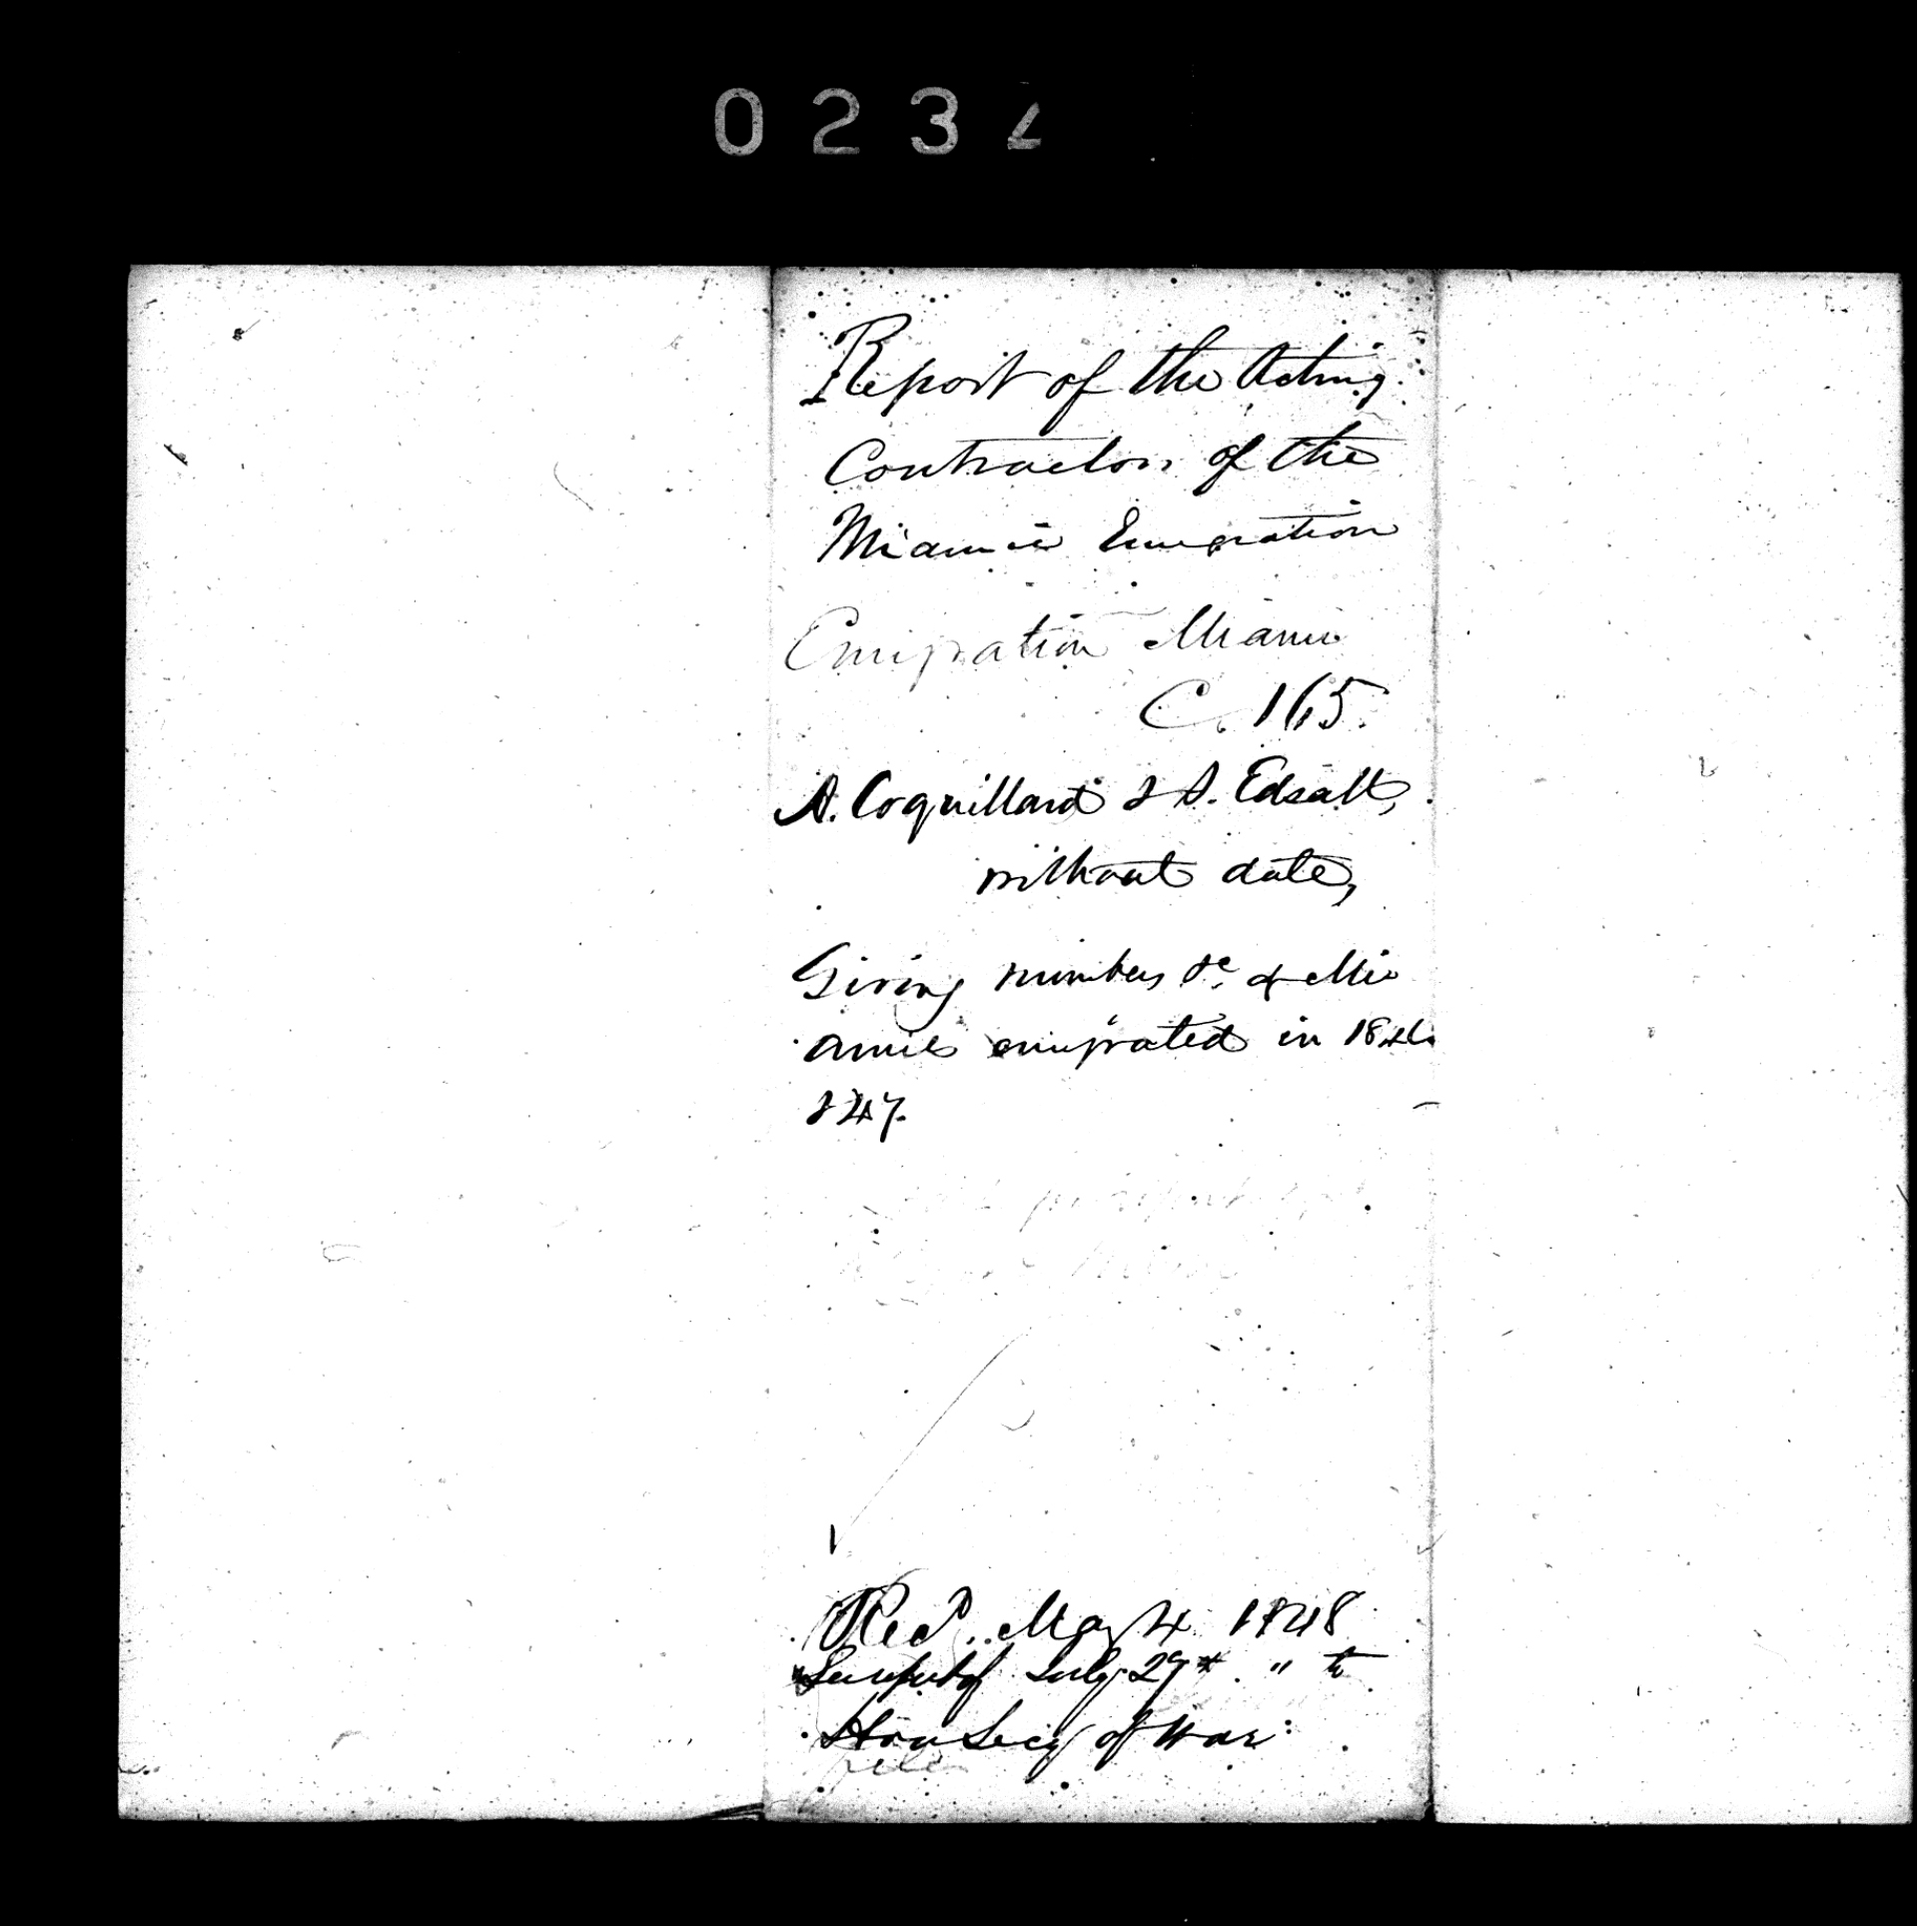 023
Report of the Acting
Contractors of the
Miamie Emigration
Emigration Miami
C. 165.
A. Coquillard & S. Edsall,
without date,
Giving number, &c, of Mi
amies emigrated in 1846
& 47.
Recd. May 4 1848
July 29th. " to
Hon Secy of War
file